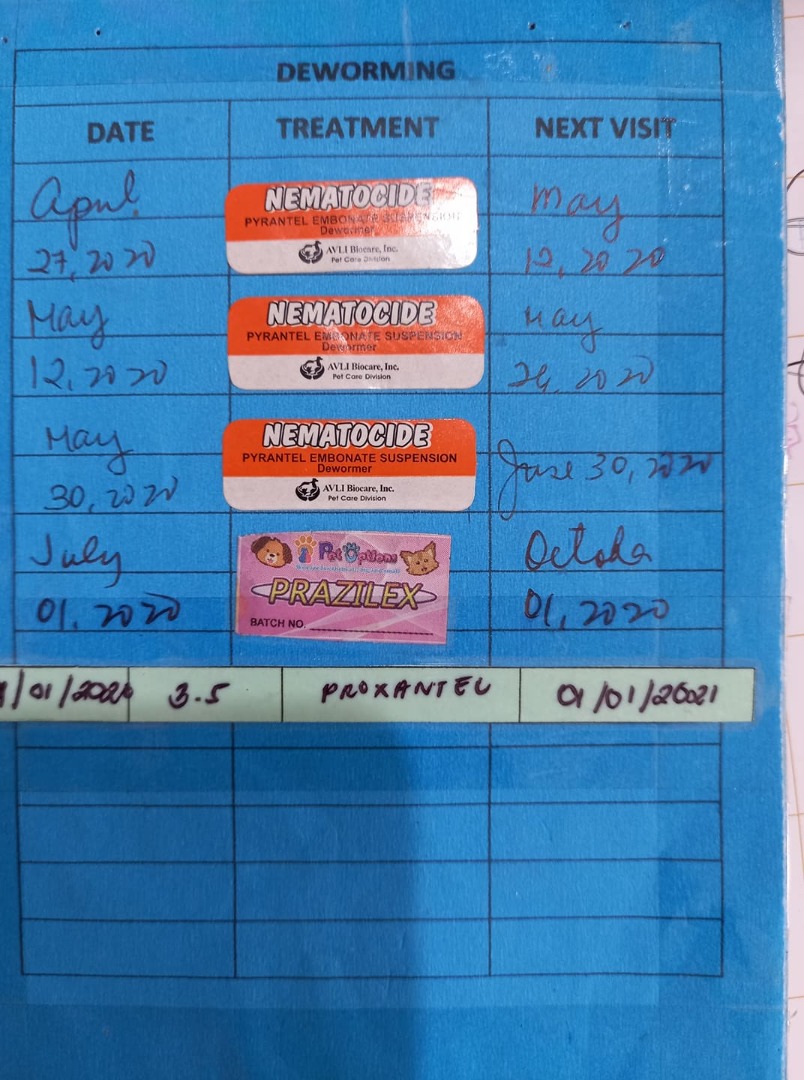 DEWORMING
DATE TREATMENT NEXT VISIT
April NEMATOCIDE May
PYRANTEL EMBONATE SUSPENSION
Dewormer
27, 2020 AVLI Biocare, Inc. 12, 2020
Pet Care Division
May NEMATOCIDE May
PYRANTEL EMBONATE SUSPENSION
Dewormer
12, 2020 AVLI Biocare, Inc. 2020
Pet Care Division
May NEMATOCIDE
PYRANTEL EMBONATE SUSPENSION
Dewormer June 30, 2020
30, 2020 AVLI Biocare, Inc.
Pet Care Division
July Pet Options October
PRAZILEX
01, 2020 BATCH NO. 01, 2020
/01/2020 3.5 PROXANTEL 01/01/2021